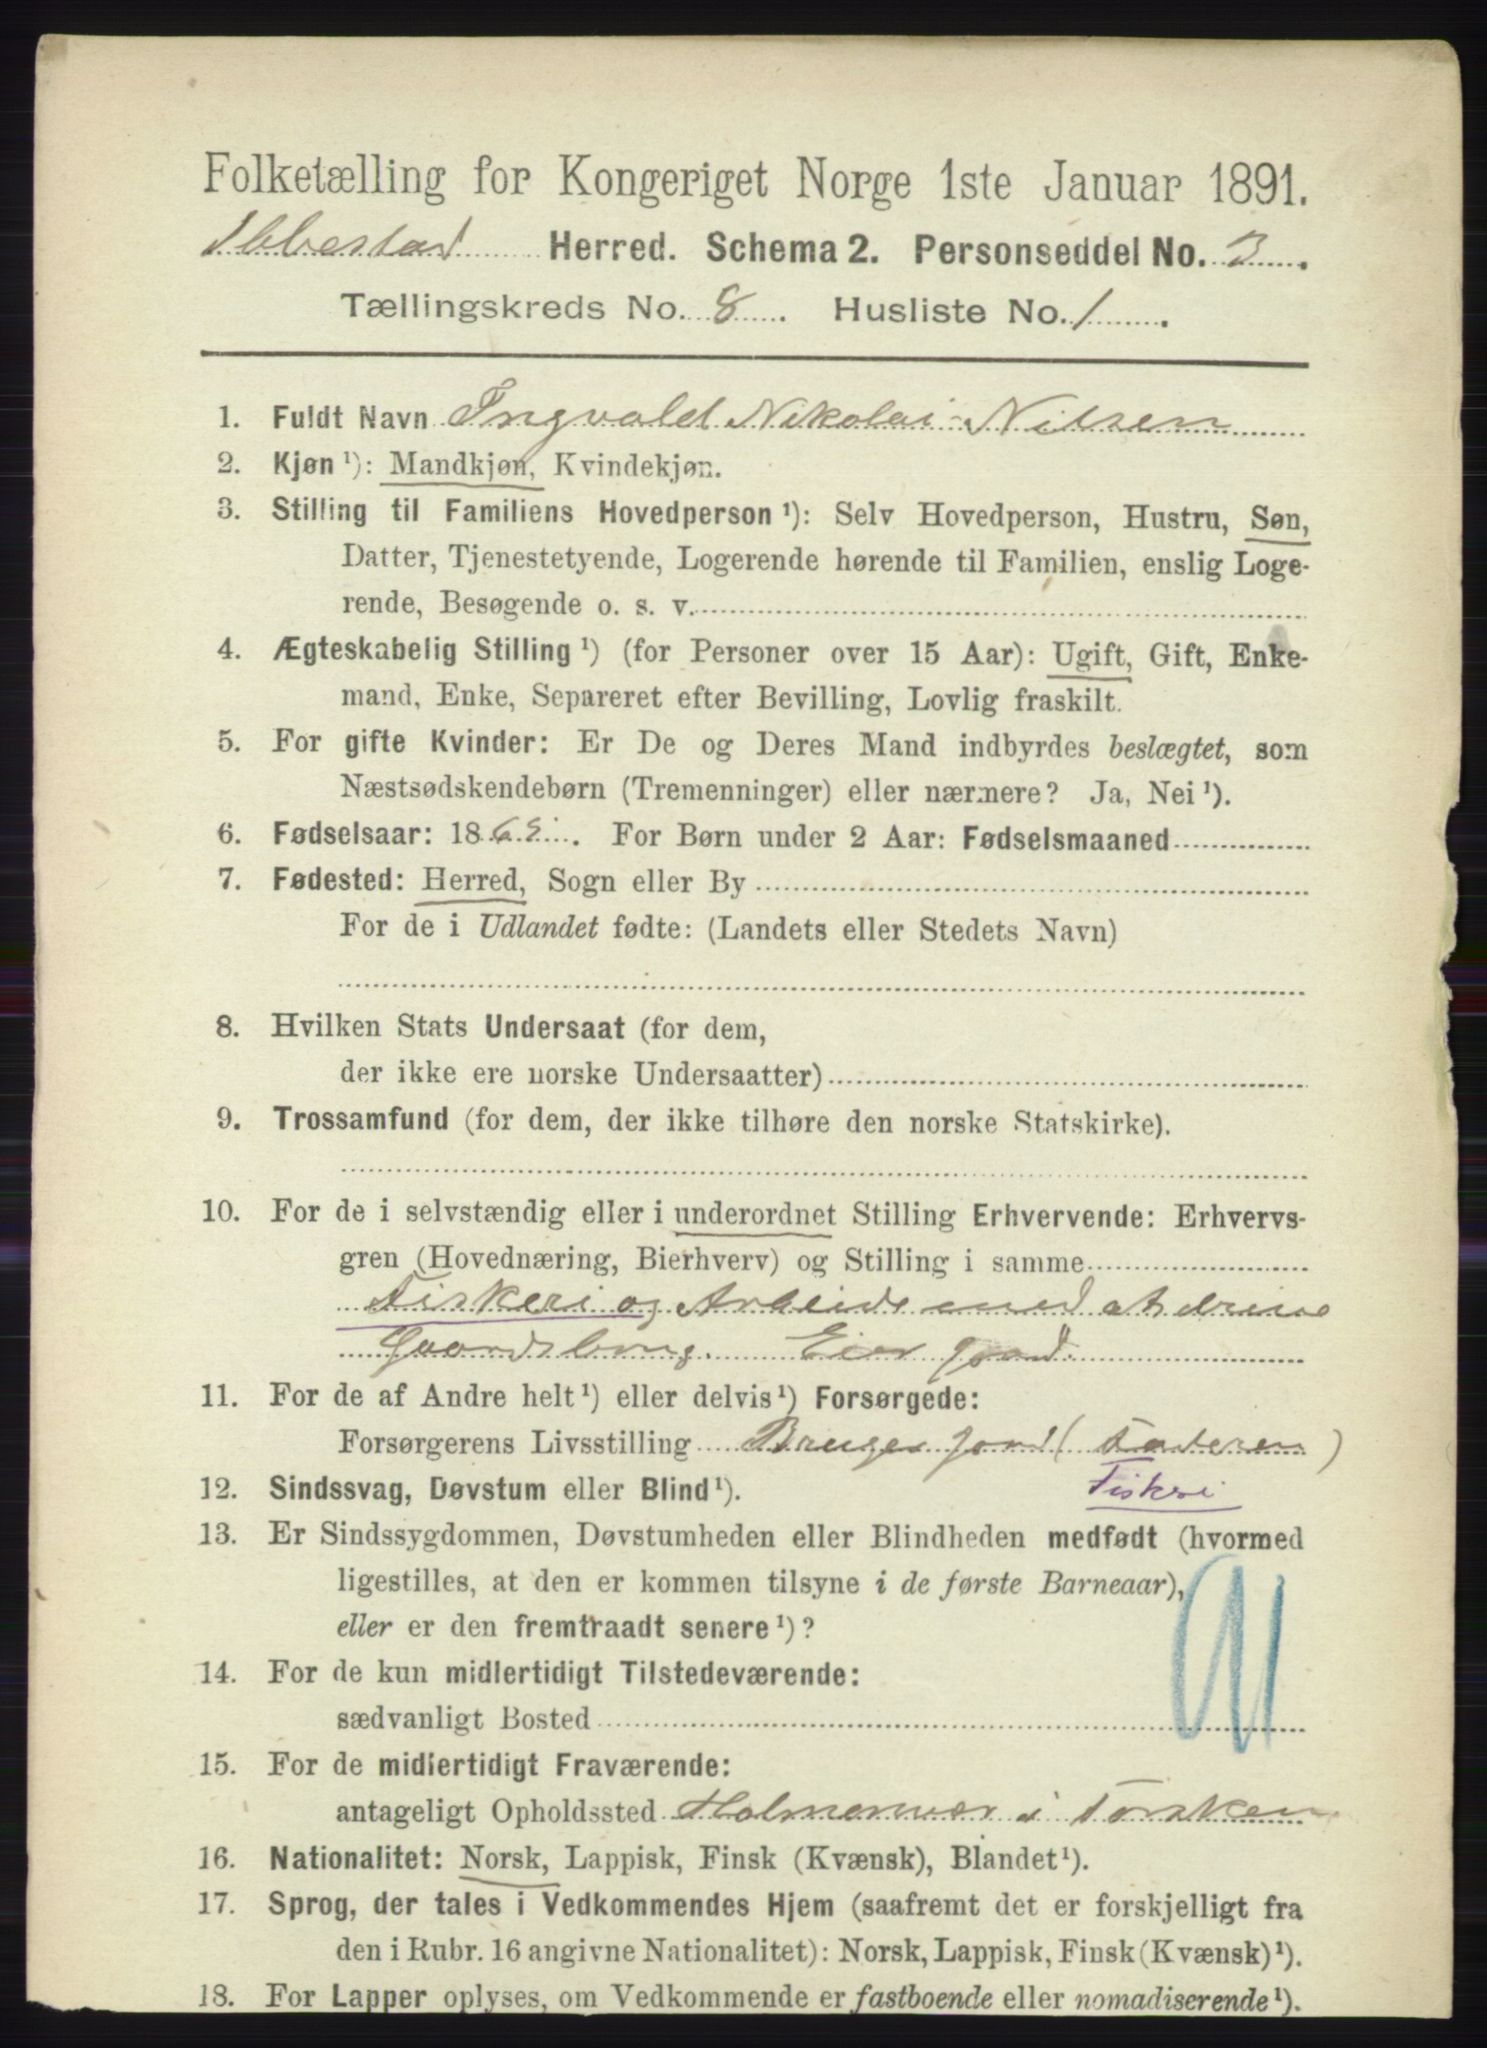 Folketælling for Kongeriget Norge 1ste Januar 1891.
Ibbestad Herred. Schema 2. Personseddel No. 3.
Tællingskreds No. 8. Husliste No. 1.
1. Fuldt Navn Ingvald Nikolai Nilsen
2. Kjøn ¹): Mandkjøn, Kvindekjøn.
3. Stilling til Familiens Hovedperson ¹): Selv Hovedperson, Hustru, Søn,
Datter, Tjenestetyende, Logerende hørende til Familien, enslig Loge-
rende, Besøgende o. s. v.
4. Ægteskabelig Stilling ¹) (for Personer over 15 Aar): Ugift, Gift, Enke-
mand, Enke, Separeret efter Bevilling, Lovlig fraskilt.
5. For gifte Kvinder: Er De og Deres Mand indbyrdes beslægtet, som
Næstsødskendebørn (Tremenninger) eller nærmere? Ja, Nei ¹).
6. Fødselsaar: 18 . For Børn under 2 Aar: Fødselsmaaned
7. Fødested: Herred, Sogn eller By
For de i Udlandet fødte: (Landets eller Stedets Navn)
8. Hvilken Stats Undersaat (for dem,
der ikke ere norske Undersaatter)
9. Trossamfund (for dem, der ikke tilhøre den norske Statskirke).
10. For de i selvstændig eller i underordnet Stilling Erhvervende: Erhvervs-
gren (Hovednæring, Bierhverv) og Stilling i samme
Fiskeri og Arbeide med at drive
Gaardsbrug. Eier Jord.
11. For de af Andre helt ¹) eller delvis ¹) Forsørgede:
Forsørgerens Livsstilling Bruger Jord (Faderen)
Fiskeri
12. Sindssvag, Døvstum eller Blind ¹).
13. Er Sindssygdommen, Døvstumheden eller Blindheden medfødt (hvormed
ligestilles, at den er kommen tilsyne i de første Barneaar),
eller er den fremtraadt senere ¹)?
14. For de kun midlertidigt Tilstedeværende:
sædvanligt Bosted
15. For de midlertidigt Fraværende:
antageligt Opholdssted Holmenvær i Torsken
16. Nationalitet: Norsk, Lappisk, Finsk (Kvænsk), Blandet ¹).
17. Sprog, der tales i Vedkommendes Hjem (saafremt det er forskjelligt fra
den i Rubr. 16 angivne Nationalitet): Norsk, Lappisk, Finsk (Kvænsk) ¹).
18. For Lapper oplyses, om Vedkommende er fastboende eller nomadiserende ¹).